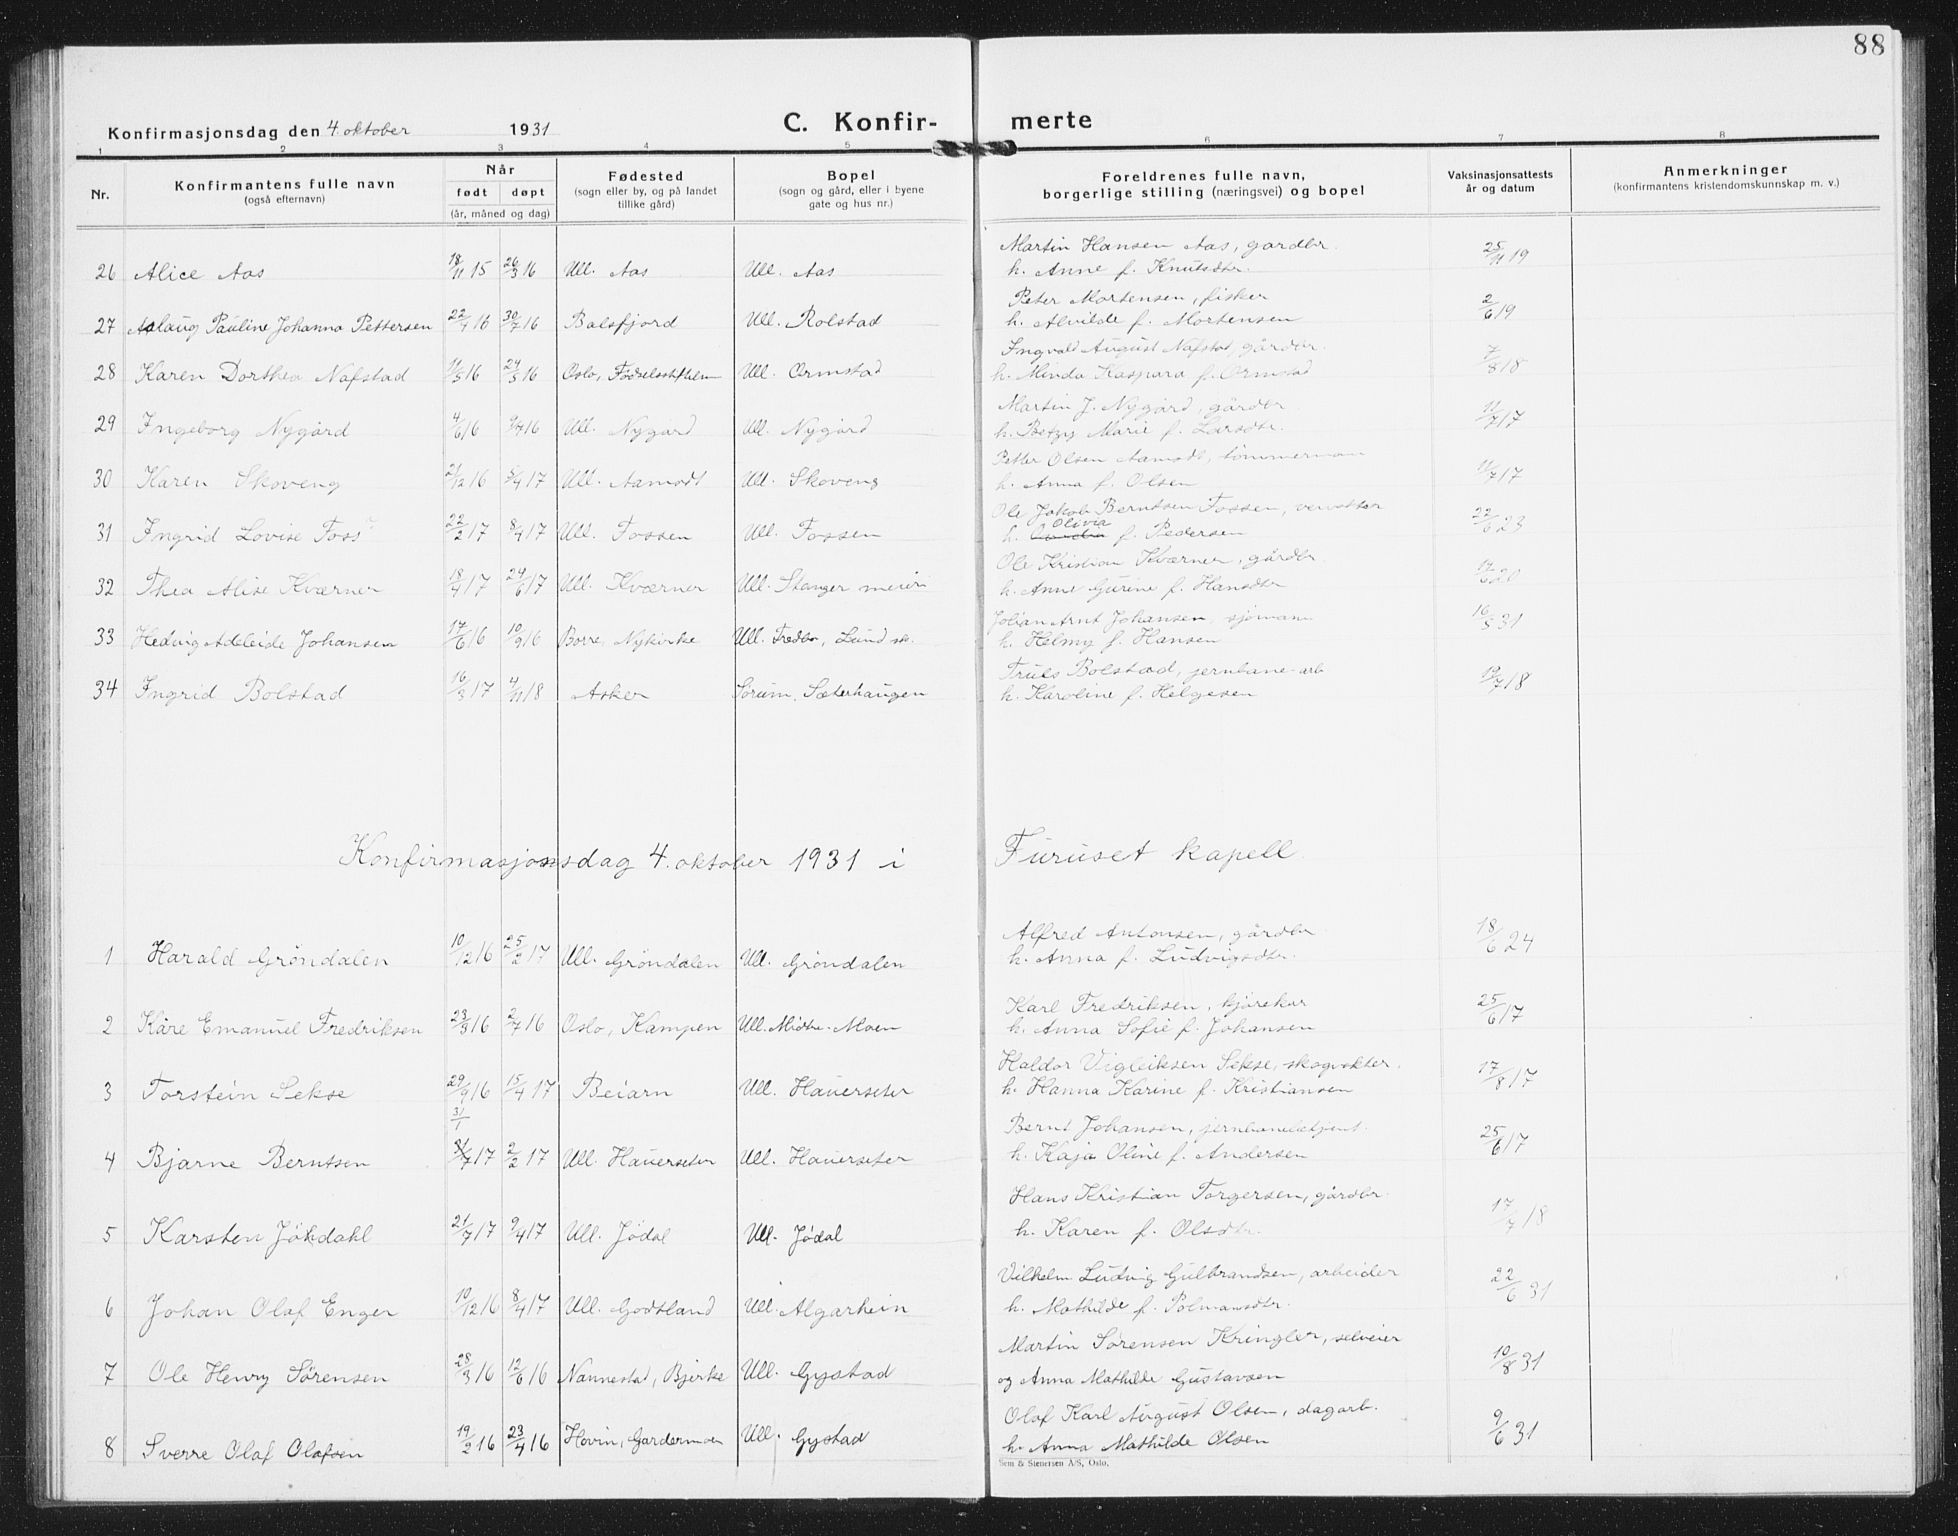 88
Konfirmasjonsdag den 4. oktober 1931 C. Konfir- merte
1 2 3 4 5 6 7 8
Nr. Konfirmantens fulle navn (også efternavn) Når født døpt (år, måned og dag) Fødested (sogn eller by, og på landet tillike gård) Bopel (sogn og gård, eller i byene gate og hus nr.) Foreldrenes fulle navn, borgerlige stilling (næringsvei) og bopel Vaksinasjonsattests år og datum Anmerkninger (konfirmantens kristendomskunnskap m. v.)
Martin Hansen Aas, gårdbr.
26 Alice Aas 18/11 15 26/3 16 Ull. Aas Ull. Aas h. Anne f. Knutsdtr. 25/11 19
Peter Mortensen, fisker
27 Aslaug Pauline Johanna Pettersen 22/4 16 30/7 16 Balsfjord Ull. Rolstad h. Alvilde f. Mortensen 2/6 19
Ingvald August Nafstad, gårdbr.
28 Karen Dorthea Nafstad 11/3 16 24/3 16 Oslo, Fødselsstiftelsen Ull. Ormstad h. Minda Kaspara f. Ormstad 7/8 18
Martin J. Nygård, gårdbr.
29 Ingeborg Nygård 4/6 16 9/7 16 Ull. Nygård Ull. Nygård h. Betzy Marie f. Larsdtr. 11/7 17
Petter Olsen Aamodt, tømmermann
30 Karen Skoveng 21/12 16 5/4 17 Ull. Aamodt Ull. Skoveng h. Anna f. Olsen 11/7 17
Ole Jakob Berntsen Fossen,
31 Ingrid Lovise Foss 22/2 17 8/4 17 Ull. Fossen Ull. Fossen h. Olivia f. Pedersen 22/6 23
Ole Kristian Kværner, gårdbr.
32 Thea Alise Kværner 18/4 17 24/6 17 Ull. Kværner Ull. Stanger meieri h. Anne Gurine f. Hansdtr 17/6 20
Johan Arnt Johansen, sjømann
33 Hedvig Adeleide Johansen 17/6 16 10/9 16 Borre, Nykirke Ull. Fredbo, Lund sk. h. Helmy f. Hansen 16/8 31
Truls Bolstad, jernbane-arb
34 Ingrid Bolstad 16/3 17 4/11 18 Asker Sørum, Sæterhaugen h. Karoline f. Helgesen 19/7 18
Konfirmasjonsdag 4. oktober 1931 i Furuset kapell.
Alfred Antonsen, gårdbr.
1 Harald Gröndalen 10/12 16 25/2 17 Ull. Gröndalen Ull. Gröndalen h. Anna f. Ludvigsdtr. 18/6 24
Karl Fredriksen, kjørekar
2 Kåre Emanuel Fredriksen 23/3 16 2/7 16 Oslo, Kampen Ull. Midtre-Moen h. Anna Sofie f. Johansen 25/6 17
Haldor Vigleiksen Sekse, skogvokter.
3 Torstein Sekse 29/9 16 15/4 17 Beiarn Ull. Hauerseter h. Hanna Karine f. Kristiansen 17/8 17
31/1 Bernt Johansen, jernbanebetjent.
4 Bjarne Berntsen 17 2/2 17 Ull. Hauerseter Ull. Hauerseter h. Kaja Oline f. Andersen 25/6 17
Hans Kristian Torgersen, gårdbr.
5 Karsten Jödahl 21/7 17 9/4 17 Ull. Jödal Ull. Jödal h. Karen f. Olsdtr. 17/7 18
Vilhelm Ludvig Gulbrandsen, arbeider
6 Johan Olaf Enger 10/12 16 8/4 17 Ull. Godtland Ull. Algarheim h. Mathilde f. Polmansdtr. 22/6 31
Martin Sørensen Kringler, selveier
7 Ole Henry Sørensen 28/3 16 12/6 16 Nannestad, Bjerke Ull. Gystad og Anna Mathilde Gustavsen 10/8 31
Olaf Karl August Olsen, dagarb.
8 Sverre Olaf Olafsen 19/2 16 23/4 16 Hovin, Gardermoen Ull. Gystad h. Anna Mathilde Olsen 9/6 31
Sem & Stenersen A/S, Oslo.